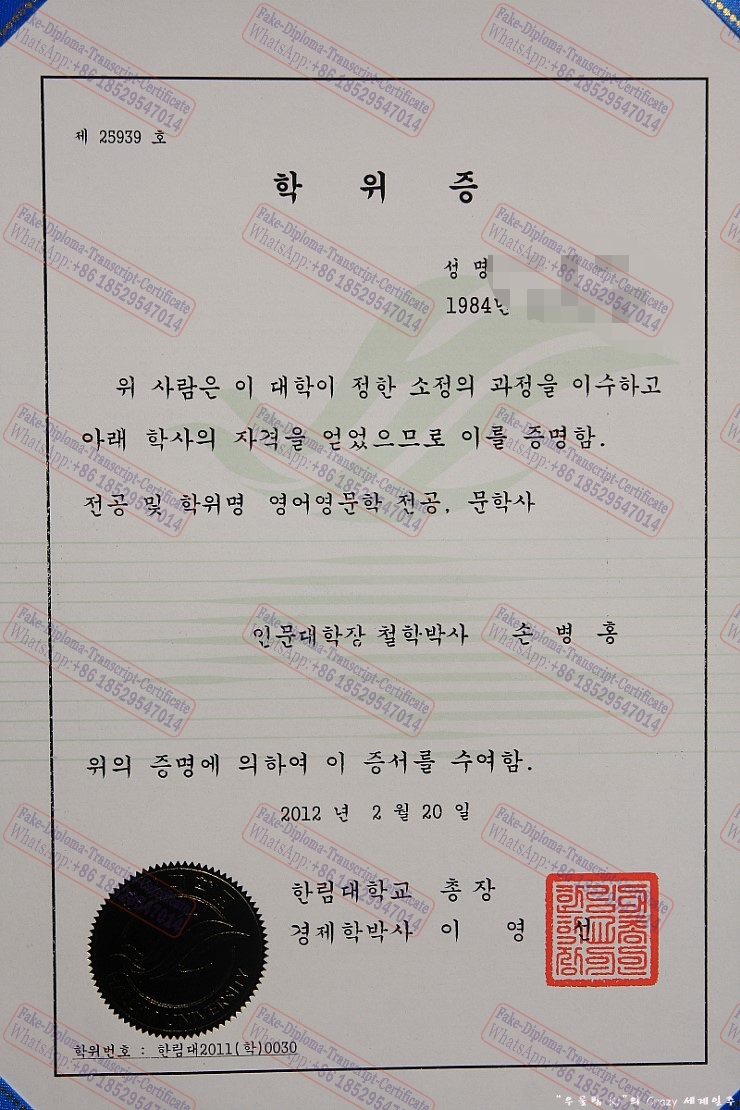 제 25939 호
학 위 증
성 명
1984년
위 사람은 이 대학이 정한 소정의 과정을 이수하고
아래 학사의 자격을 얻었으므로 이를 증명함.
전공 및 학위명 영어영문학 전공, 문학사
인문대학장 철학박사 손 병 홍
위의 증명에 의하여 이 증서를 수여함.
2012 년 2 월 20 일
한림대학교 총장
경제학박사 이 영 선
학위번호 : 한림대2011(학)0030
Fake-Diploma-Transcript-Certificate
WhatsApp:+86 18529547014
UNIVERSITY
Crazy 세계일주